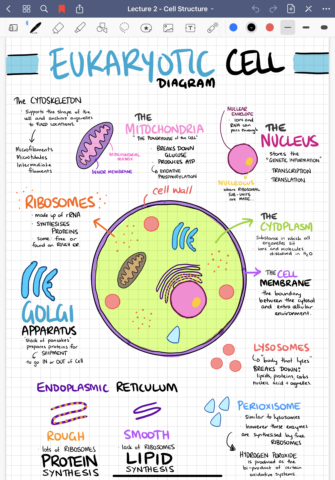 Lecture 2 - Cell Structure
EUKARYOTIC CELL
DIAGRAM
The CYTOSKELETON
Supports the shape of the
cell and anchors organelles
to fixed locations
Microfilaments
Microtubules
Intermediate
filaments
THE
MITOCHONDRIA
"THE POWERHOUSE of the CELL"
BREAKS DOWN
GLUCOSE
PRODUCES ATP
OXIDATIVE
PHOSPHORYLATION
MITOCHONDRIAL
MATRIX
INNER MEMBRANE
NUCLEAR
ENVELOPE
ions and
RNA can
pass through
NUCLEOLUS
where RIBOSOMAL
SUB-UNITS
are MADE
THE
NUCLEUS
stores the
"GENETIC INFORMATION"
TRANSCRIPTION
TRANSLATION
RIBOSOMES
made up of rRNA
SYNTHESISES
PROTEINS
some free or
found on ROUGH ER
cell wall
THE
CYTOPLASM
Substance in which all
organelles sit
ions and molecules
dissolved in H₂O
THE CELL
MEMBRANE
the bounding
between the cytosol
and extracellular
environment
GOLGI
APPARATUS
"stack of pancakes"
prepares proteins for
SHIPMENT
to go IN or OUT of CELL
LYSOSOMES
"body that lyses"
BREAKS DOWN:
lipids, proteins, carbs
nucleic acid + organelles
ENDOPLASMIC RETICULUM
ROUGH
lots of RIBOSOMES
PROTEIN
SYNTHESIS
SMOOTH
lack of RIBOSOMES
LIPID
SYNTHESIS
PERIOXISOME
Similar to lysosomes
however these enzymes
are synthesised by free
RIBOSOMES
HYDROGEN PEROXIDE
is produced as the
bi-product of certain
oxidative systems